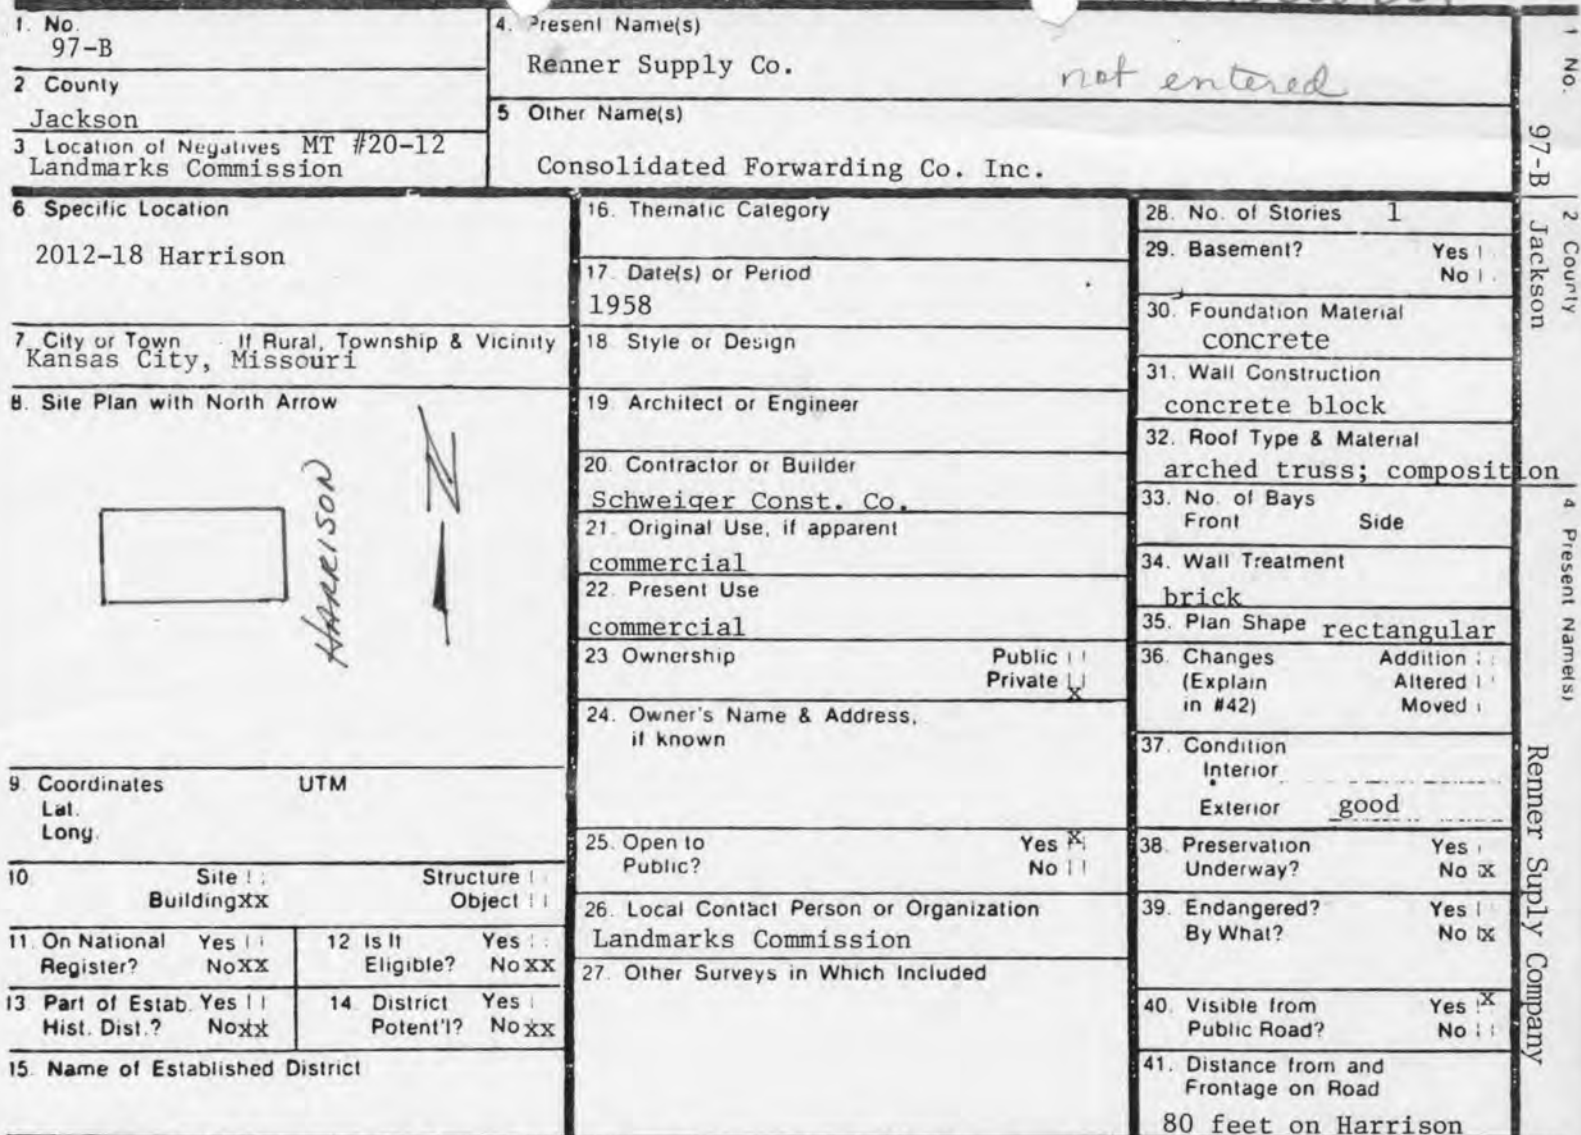 1. No.
97-B
2 County
Jackson
3 Location of Negatives MT #20-12
Landmarks Commission
4. Present Name(s)
Renner Supply Co.
not entered
5 Other Name(s)
Consolidated Forwarding Co. Inc.
6 Specific Location
2012-18 Harrison
7 City or Town If Rural, Township & Vicinity
Kansas City, Missouri
8. Site Plan with North Arrow
HARRISON
N
9. Coordinates UTM
Lat.
Long.
10 Site Structure
Building XX Object
11. On National Yes
Register? No XX
12 Is It Yes
Eligible? No XX
13 Part of Estab. Yes
Hist. Dist.? No XX
14. District Yes
Potent'l? No XX
15. Name of Established District
16. Thematic Category
17. Date(s) or Period
1958
18 Style or Design
19. Architect or Engineer
20. Contractor or Builder
Schweiger Const. Co.
21. Original Use, if apparent
commercial
22. Present Use
commercial
23 Ownership Public
Private x
24. Owner's Name & Address,
if known
25. Open to Yes x
Public? No
26. Local Contact Person or Organization
Landmarks Commission
27. Other Surveys in Which Included
28. No. of Stories 1
29. Basement? Yes
No
30. Foundation Material
concrete
31. Wall Construction
concrete block
32. Roof Type & Material
arched truss; composition
33. No. of Bays
Front Side
34. Wall Treatment
brick
35. Plan Shape rectangular
36. Changes Addition
(Explain Altered
in #42) Moved
37. Condition
Interior
Exterior good
38. Preservation Yes
Underway? No x
39. Endangered? Yes
By What? No x
40. Visible from Yes x
Public Road? No
41. Distance from and
Frontage on Road
80 feet on Harrison
1 No.
97-B
2 County
Jackson
4 Present Name(s)
Renner Suply Company